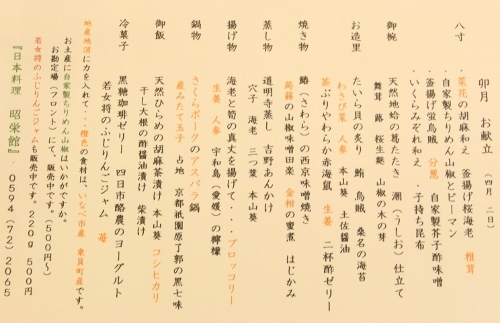 卯月 お献立 (四月 二日)
八寸 菜花の胡麻和え 釜揚げ桜海老 椎茸
自家製ちりめん山椒とピーマン
・釜揚げ蛍烏賊 分葱 自家製芥子酢味噌
・いくらみぞれ和え ・子持ち昆布
御椀 天然地蛤の葛たたき 潮(うしお)仕立て
舞茸 蕗 桜生麩 山椒の木の芽
お造里 たいら貝の炙り 鮪 烏賊 桑名の海苔
わさび菜 人参 本山葵 土佐醤油
茶ぶりやわらか赤海鼠 生姜 二杯酢ゼリー
焼き物 鰆(さわら)の西京味噌焼き
蒟蒻の山椒味噌田楽 金柑の蜜煮 はじかみ
蒸し物 道明寺蒸し 吉野あんかけ
穴子 海老 三つ葉 本山葵
揚げ物 海老と筍の真丈を揚げて・・・ブロッコリー
生姜 人参 宇和島(愛媛)の檸檬
鍋物 さくらポークのアスパラ鍋
産みたて玉子 占地 京都祇園原了郭の黒七味
御飯 天然ひらめの胡麻茶漬け 本山葵 コシヒカリ
干し大根の酢醤油漬け 柴漬け
冷菓子 黒糖珈琲ゼリー 四日市酪農のヨーグルト
若女将のふじりんごジャム 苺
地産地消に力を入れて・・・橙色の食材は、いなべ市産 東員町産です。
お土産に自家製ちりめん山椒はいかがですか。
お勘定場(フロント)にて、販売中です。(500円〜)
若女将のふじりんごジャムも販売中です。220g 500円
『日本料理 昭栄館』 0594(72)2065